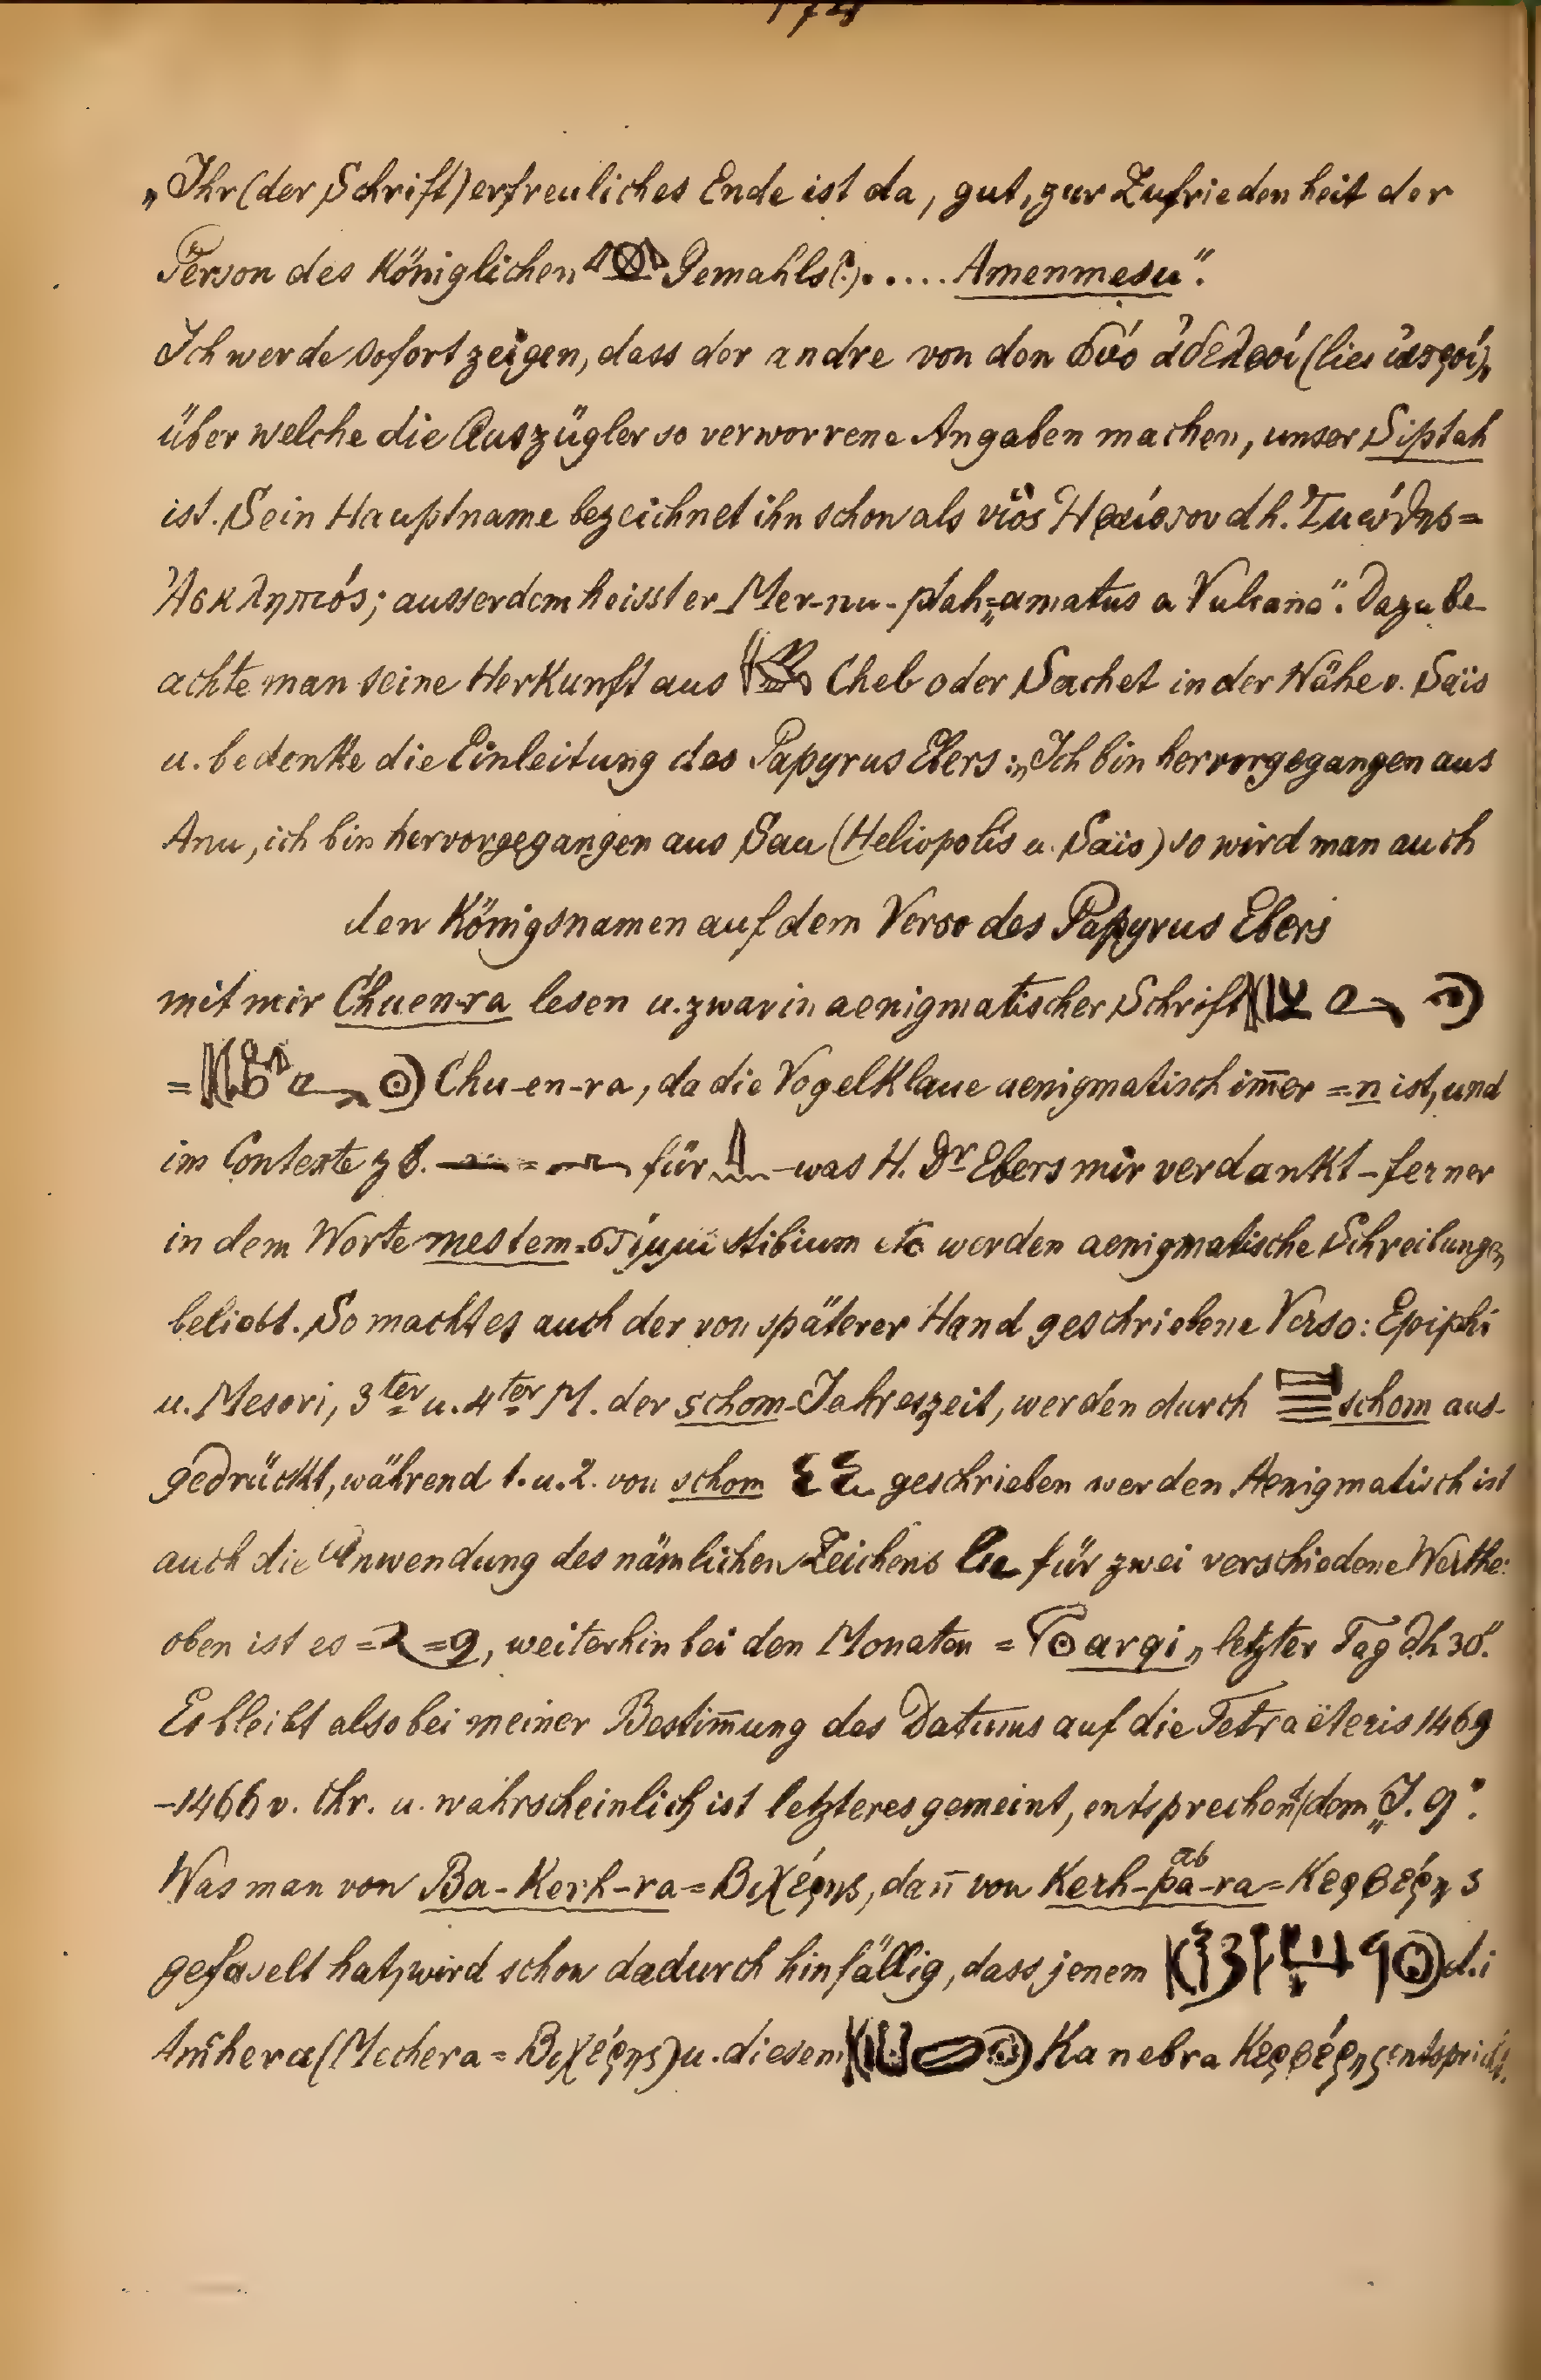 „Ihr (der Schrift) erfreuliches Ende ist da, gut, zur Zufriedenheit der
Person des Königlichen Gemahls(?)..... Amenmesu“.
Ich werde sofort zeigen, dass der andre von den δύο ἀδελφοί (lies ἰατροί),
über welche die Auszügler so verworrene Angaben machen, unser Siptah
ist. Sein Hauptname bezeichnet ihn schon als υἱὸς Ἡφαίστου dh. Ἰμώθης=
Ἀσκληπιός; ausserdem heisst er Mer-nu-ptah=„amatus a Vulcano“. Dazu be-
achte man seine Herkunft aus Cheb oder Sachet in der Nähe v. Saïs
u. bedenke die Einleitung des Papyrus Ebers: „Ich bin hervorgegangen aus
Anu, ich bin hervorgegangen aus Sau (Heliopolis u. Saïs) so wird man auch
den Königsnamen auf dem Verso des Papyrus Ebers
mit mir Chuen-ra lesen u. zwar in aenigmatischer Schrift
= Chu-en-ra, da die Vogelklaue aenigmatisch im̅er = n ist, und
im Contexte z B. = für – was H. Dr Ebers mir verdankt – ferner
in dem Worte mestem = στίμμι stibium etc werden aenigmatische Schreibungen
beliebt. So macht es auch der von späterer Hand geschriebene Verso: Epiphi
u. Mesori, 3ter u. 4ter M. der schom-Jahreszeit, werden durch schom aus-
gedrückt, während 1. u. 2. von schom geschrieben werden Aenigmatisch ist
auch die Anwendung des nämlichen Zeichens für zwei verschiedene Werthe:
oben ist es = = 9, weiterhin bei den Monaten = arqi „letzter Tag dh 30“.
Es bleibt also bei meiner Bestim̅ung des Datums auf die Tetraëteris 1469
–1466 v. Chr. u. wahrscheinlich ist letzteres gemeint, entsprechend dem „J. 9“.
Was man von Ba-Kerh-ra = Βιχέρης, dan̅ von Kerh-pa-ra = Κερφέρης
ab
gefaselt hat, wird schon dadurch hinfällig, dass jenem d.i
Amhera (Mechera = Βιχέρης) u. diesem Kanebra Κερφέρης entspricht.